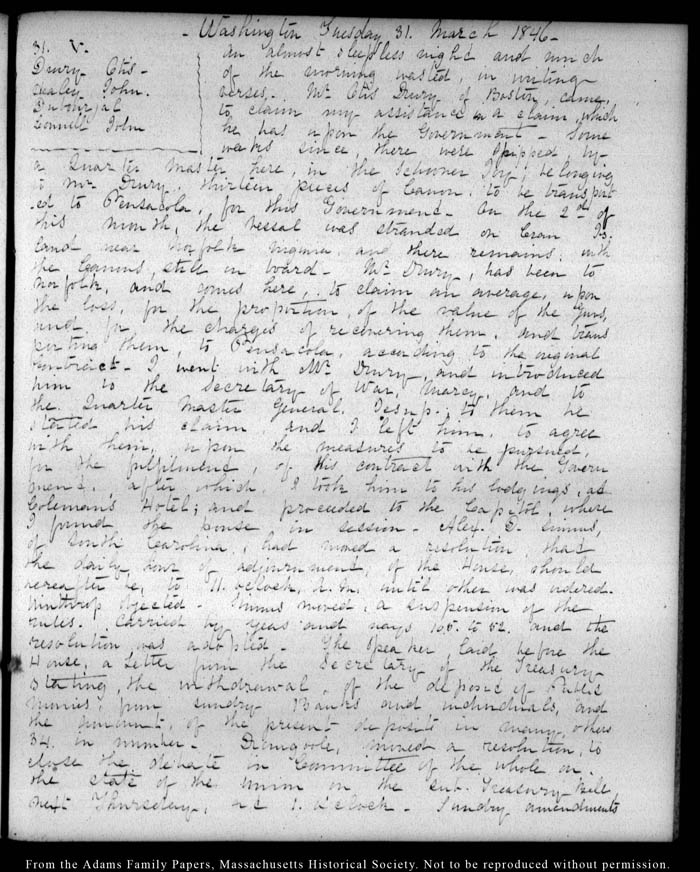 - Washington Tuesday 31. March 1846-
31. V.
Drury Otis-
John.
Connell John
An almost sleepless night and much
of the morning wasted, in writing
verses. Mr Otis Drury of Boston, came,
to claim my assistance in a claim, which
he has upon the Government - Some
weeks since, there were shipped by
a Quarter Master here, in the Schooner Ivy, belonging
to Mr Drury, thirteen pieces of Canon, to be transport
ed to Pensacola, for this Government- On the 2d of
this month, the vessel was stranded on Is-
land near Norfolk Virginia and there remains, with
the Cannons, still on board- Mr Drury, has been to
Norfolk, and comes here, to claim an average, upon
the loss, for the proportion, of the value of the Guns,
and for, the charges of recovering them, and trans
porting them, to Pensacola, according to the original
Contract- I went with Mr Drury, and introduced
him to the Secretary of War, Marcy, and to
the Quarter Master General, Jesup, to them he
stated his claim and I left him, to agree
with them, upon the measures to be pursued,
for the fulfilment, of his contract with the Govern
ment, after which, I took him to his lodgings, at
Colemans Hotel; and proceeded to the Capitol, where
I found, the house in session- Alex. D. Simms,
of South Carolina, had moved a resolution, that
the daily hour of adjournment, of the House, should
hereafter be, to 11. o'clock, A.M. until other was ordered.
Winthrop objected- Simms moved, a suspension of the
rules. Carried by Yeas and nays 105. to 52. and the
resolution was adopted- The Speaker, laid before the
House, a Letter from the Secretary of the Treasury
Stating, the withdrawal, of the deposit of Public
monies, from sundry Banks and individuals, and
the amount, of the present deposits in many others
34. in number- Dromgoole, moved a resolution, to
close the debate in Committee of the whole on
the state of the union on the Sub. Treasury Bill,
next Thursday, at 1. o'clock- Sundry amendments
From the Adams Family Papers, Massachusetts Historical Society. Not to be reproduced without permission.